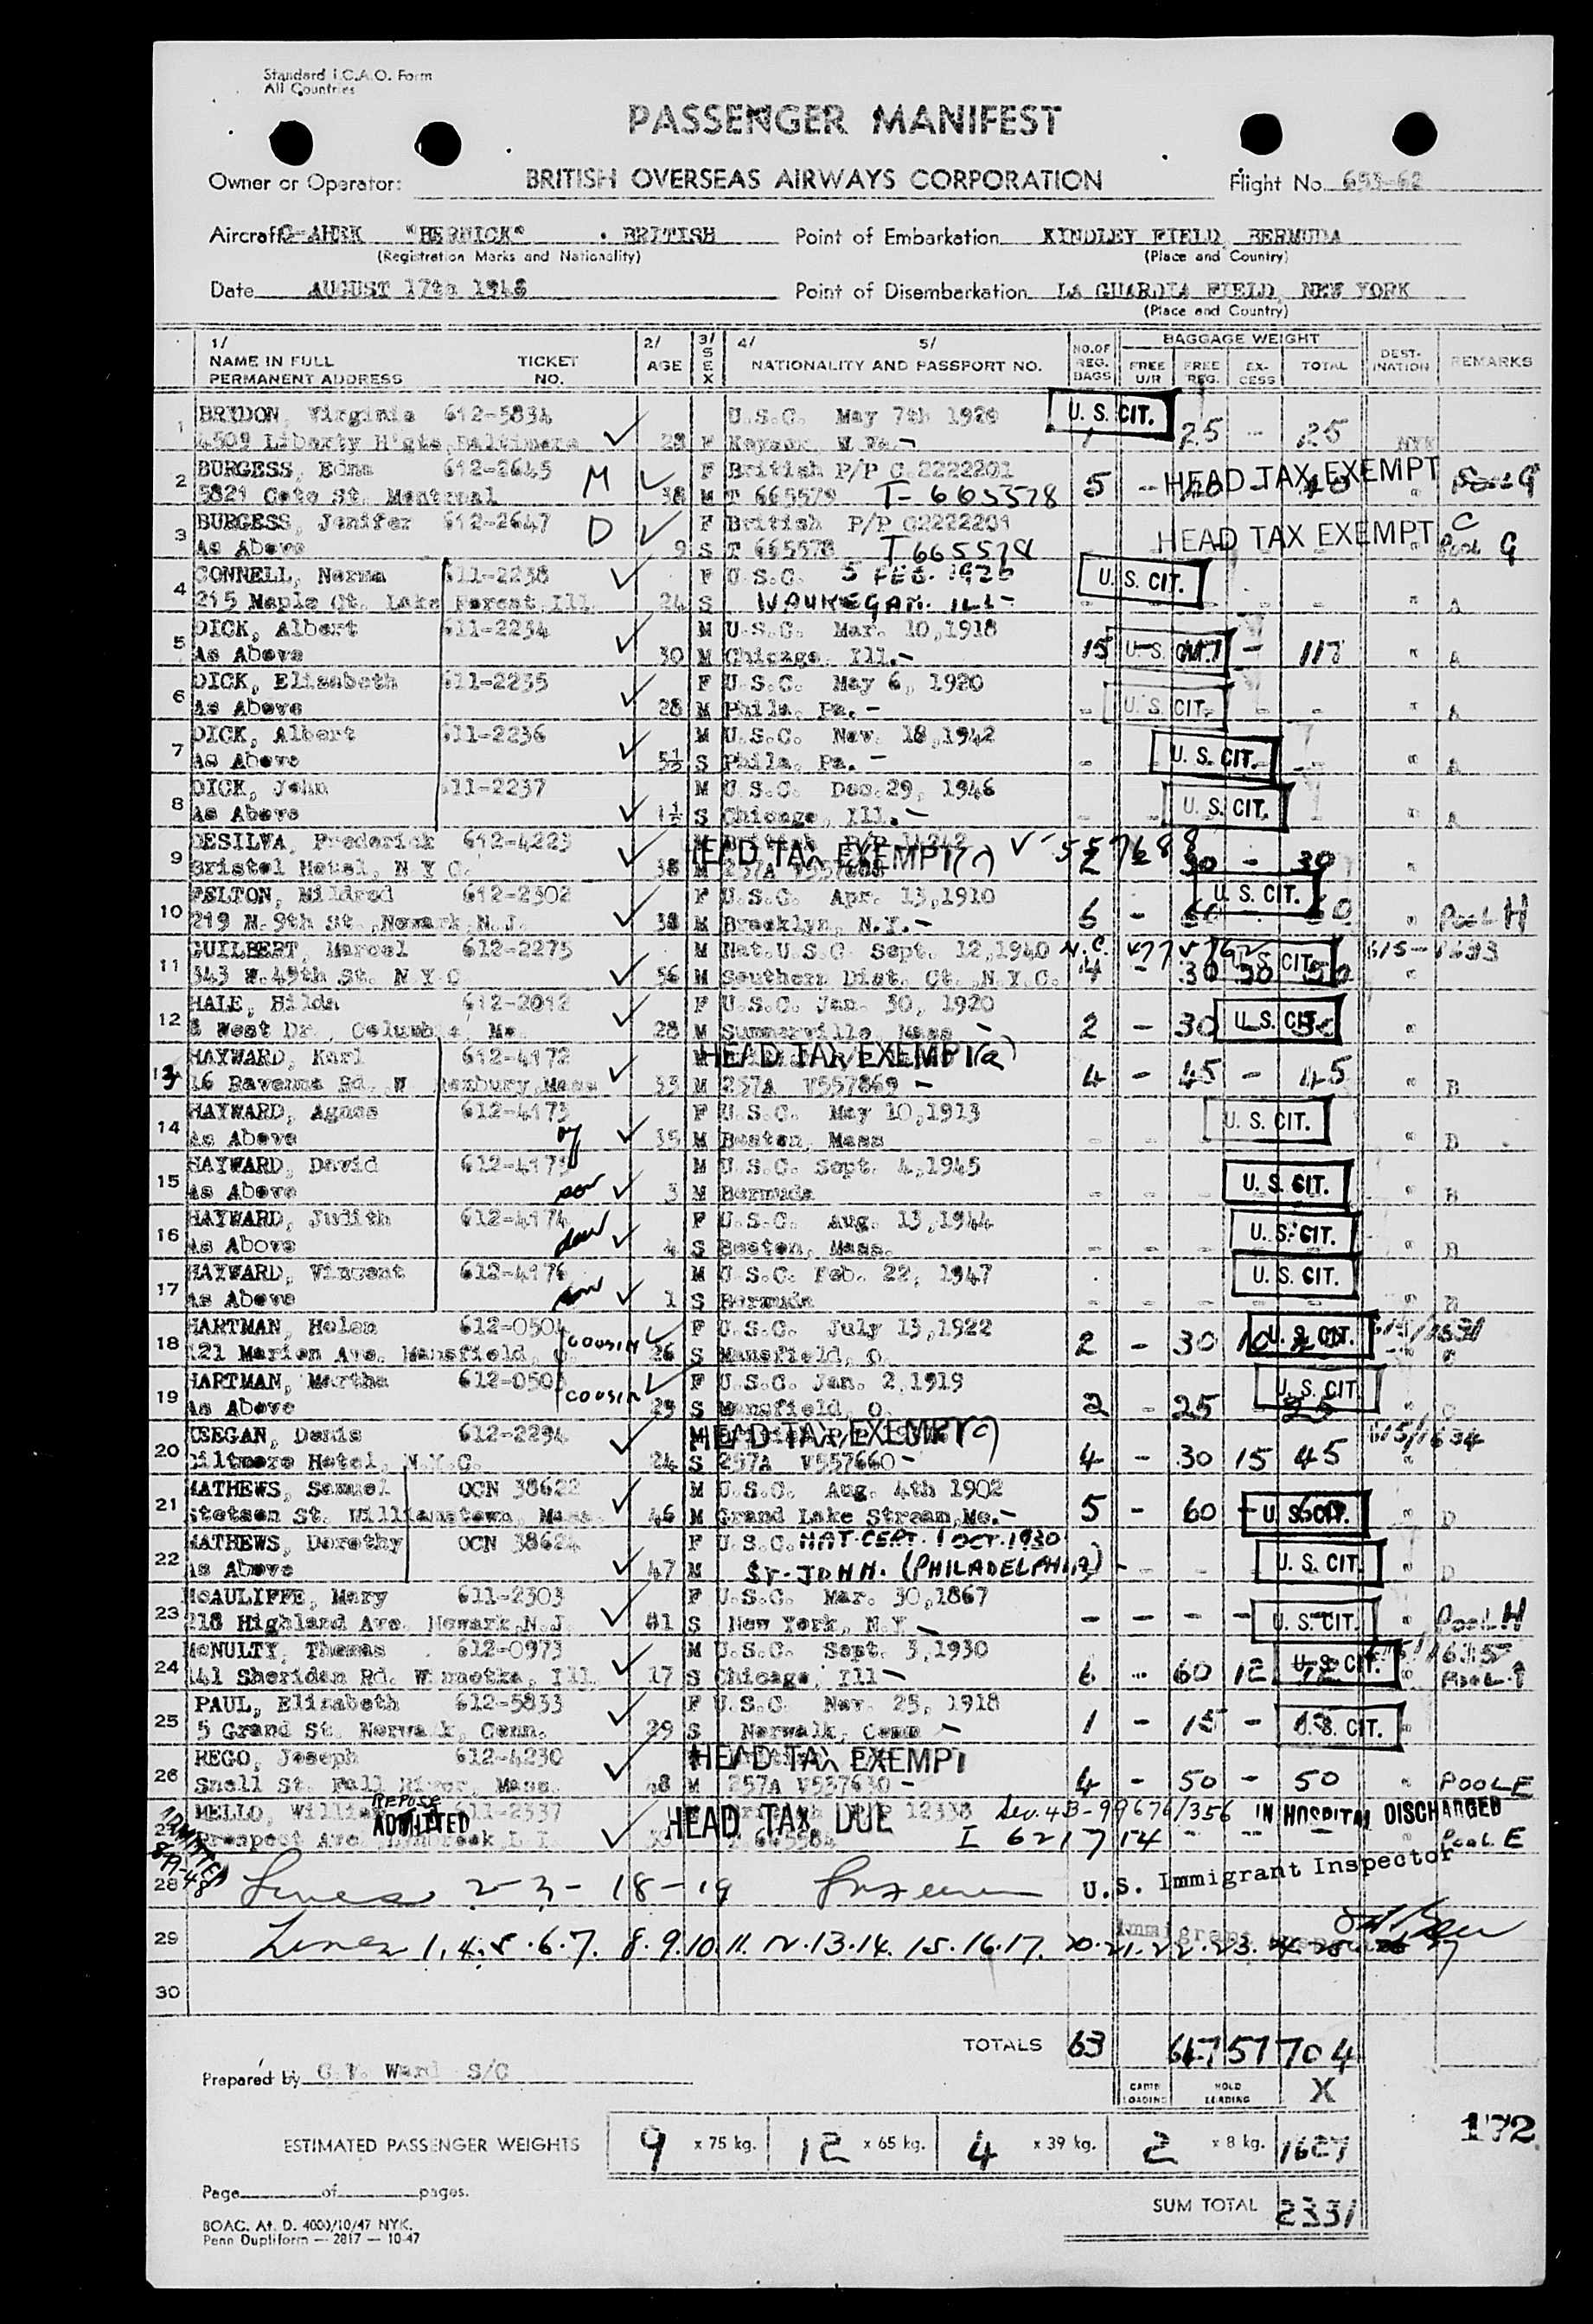 Standard I.C.A.O. Form
All Countries
PASSENGER MANIFEST
Owner or Operator: BRITISH OVERSEAS AIRWAYS CORPORATION Flight No. 693-62
Aircraft "BERWICK" BRITISH Point of Embarkation KINDLEY FIELD, BERMUDA
(Registration Marks and Nationality) (Place and Country)
Date AUGUST 17th 1948 Point of Disembarkation LA GUARDIA FIELD, NEW YORK
(Place and Country)
1/ 2/ 3/ 4/ 5/ NO. OF BAGGAGE WEIGHT
NAME IN FULL TICKET AGE SEX NATIONALITY AND PASSPORT NO. REG. FREE FREE EX- TOTAL DEST- REMARKS
PERMANENT ADDRESS NO. BAGS U/R REG. CESS INATION
1 BRYDON, Virginia 612-5834 U.S.C. May 7th 1920 U.S. CIT.
4509 Liberty H'gts, Baltimore 28 F Keyser, W Va.- 1 25 - 25 NYK
2 BURGESS, Edna 612-2645 M F British P/P C 2222201 HEAD TAX EXEMPT
5821 Cote St. Montreal 38 M T 665579 T-665578 5 - G
3 BURGESS, Jenifer 612-2647 D F British P/P C2222201 HEAD TAX EXEMPT C
As Above 9 S T 665578 T665578 " Pool G
4 CONNELL, Norma 611-2238 F U.S.C. 5 FEB. 1926 U.S. CIT.
215 Maple Ct. Lake Forest, Ill. 24 S WAUKEGAN. ILL- - - - - - " A
5 DICK, Albert 611-2234 M U.S.C. Mar. 10,1918 U.S. CIT.
As Above 30 M Chicago, Ill.- 15 - 117 - 117 " A
6 DICK, Elizabeth 611-2235 F U.S.C. May 6, 1920 U.S. CIT.
As Above 28 M Phila. Pa.- - - - - - " A
7 DICK, Albert 611-2236 M U.S.C. Nov. 18,1942 U.S. CIT.
As Above 5½ S Phila. Pa. - - " A
8 DICK, John 611-2237 M U.S.C. Dec.29, 1946 U.S. CIT.
As Above 1½ S Chicago, Ill.- " A
9 DESILVA, Frederick 612-4223 HEAD TAX EXEMPT V-557688
Bristol Hotel, N Y C. 38 M 257A V557688 2 30 - 30 "
10 FELTON, Mildred 612-2302 F U.S.C. Apr. 13,1910 U.S. CIT.
219 N.9th St., Newark, N.J. 38 M Brooklyn, N.Y.- 6 - 60 - 60 " Pool H
11 GUILBERT, Marcel 612-2275 M Nat.U.S.C Sept. 12,1940 N.C. U.S. CIT. 615-1633
343 W.49th St. N Y C 56 M Southern Dist. Ct., N.Y.C. 4 - 30 20 50 "
12 HALE, Hilda 612-2012 F U.S.C. Jan. 30, 1920 U.S. CIT.
West Dr., Columbia, Mo. 28 M Summerville, Mass - 2 - 30 - 30 "
13 HAYWARD, Karl 612-4172 HEAD TAX EXEMPT (a)
16 Ravenna Rd. W Roxbury, Mass 33 M 257A V557869 - 4 - 45 - 45 " B
14 HAYWARD, Agnes 612-4173 F U.S.C. May 10,1913 U.S. CIT.
As Above 35 M Boston, Mass - - - " B
15 HAYWARD, David 612-4175 M U.S.C. Sept. 4,1945 U.S. CIT.
As Above son 3 M Bermuda - - - " B
16 HAYWARD, Judith 612-4174 F U.S.C. Aug. 13,1944 U.S. CIT.
As Above dau 4 S Boston, Mass. - - - - - " B
17 HAYWARD, Vincent 612-4176 M U.S.C. Feb. 22, 1947 U.S. CIT.
As Above son 1 S Bermuda - - - - - " B
18 HARTMAN, Helen 612-0504 COUSIN F U.S.C. July 13,1922 U.S. CIT.
121 Marion Ave. Mansfield, O. 26 S Mansfield, O. 2 - 30 10 " C
19 HARTMAN, Martha 612-0503 COUSIN F U.S.C. Jan. 2,1919 U.S. CIT.
As Above 29 S Mansfield, O. 2 - 25 25 C
20 KEEGAN, Denis 612-2294 HEAD TAX EXEMPT 615/1634
Biltmore Hotel, N.Y.C. 24 S 257A V557660- 4 - 30 15 45 "
21 MATHEWS, Samuel OCN 38622 M U.S.C. Aug. 4th 1902 U.S. CIT.
Stetson St. Williamstown, Mass. 46 M Grand Lake Stream, Me.- 5 - 60 - 60 " D
22 MATHEWS, Dorothy OCN 38624 F U.S.C. NAT. CERT. 1 OCT. 1930 U.S. CIT.
As Above 47 M ST. JOHN. (PHILADELPHIA) - - - - " D
23 McAULIFFE, Mary 611-2303 F U.S.C. Mar. 30,1867 U.S. CIT.
218 Highland Ave. Newark, N.J. 81 S New York, N.Y. - - - - - " Pool H
24 McNULTY, Thomas 612-0973 M U.S.C. Sept. 3,1930 U.S. CIT. 615/1635
141 Sheridan Rd. Winnetka, Ill. 17 S Chicago, Ill- 6 - 60 12 72 "
25 PAUL, Elizabeth 612-5833 F U.S.C. Nov. 25, 1918 U.S. CIT.
5 Grand St. Norwalk, Conn. 29 S Norwalk, Conn - 1 - 15 - 15 "
26 REGO, Joseph 612-4230 HEAD TAX EXEMPT
Snell St. Fall River, Mass. 48 M 257A V557630 - 4 - 50 - 50 " POOL E
27 MELLO, William 611-2337 HEAD TAX DUE 12338 IN HOSPITAL DISCHARGED
ADMITTED
Prospect Ave. Lynbrook L I. T 665584 I 621714 - - - " Pool E
ADMITTED
28 Lines 2-3-18-19 U.S. Immigrant Inspector
29 Lines 1.4.5.6.7. 8.9.10.11.12.13.14. 15.16.17. 20.21.22.23.24.25.26 27
30
TOTALS 63 647 57 704
Prepared by G.F. Ward S/C
CABIN LOADING HOLD LOADING X
ESTIMATED PASSENGER WEIGHTS 9 x 75 kg. 12 x 65 kg. 4 x 39 kg. 2 x 8 kg. 1627
172
Page of pages.
SUM TOTAL 2331
BOAC. At. D. 4000/10/47 NYK.
Penn Dupliform — 2817 — 10-47